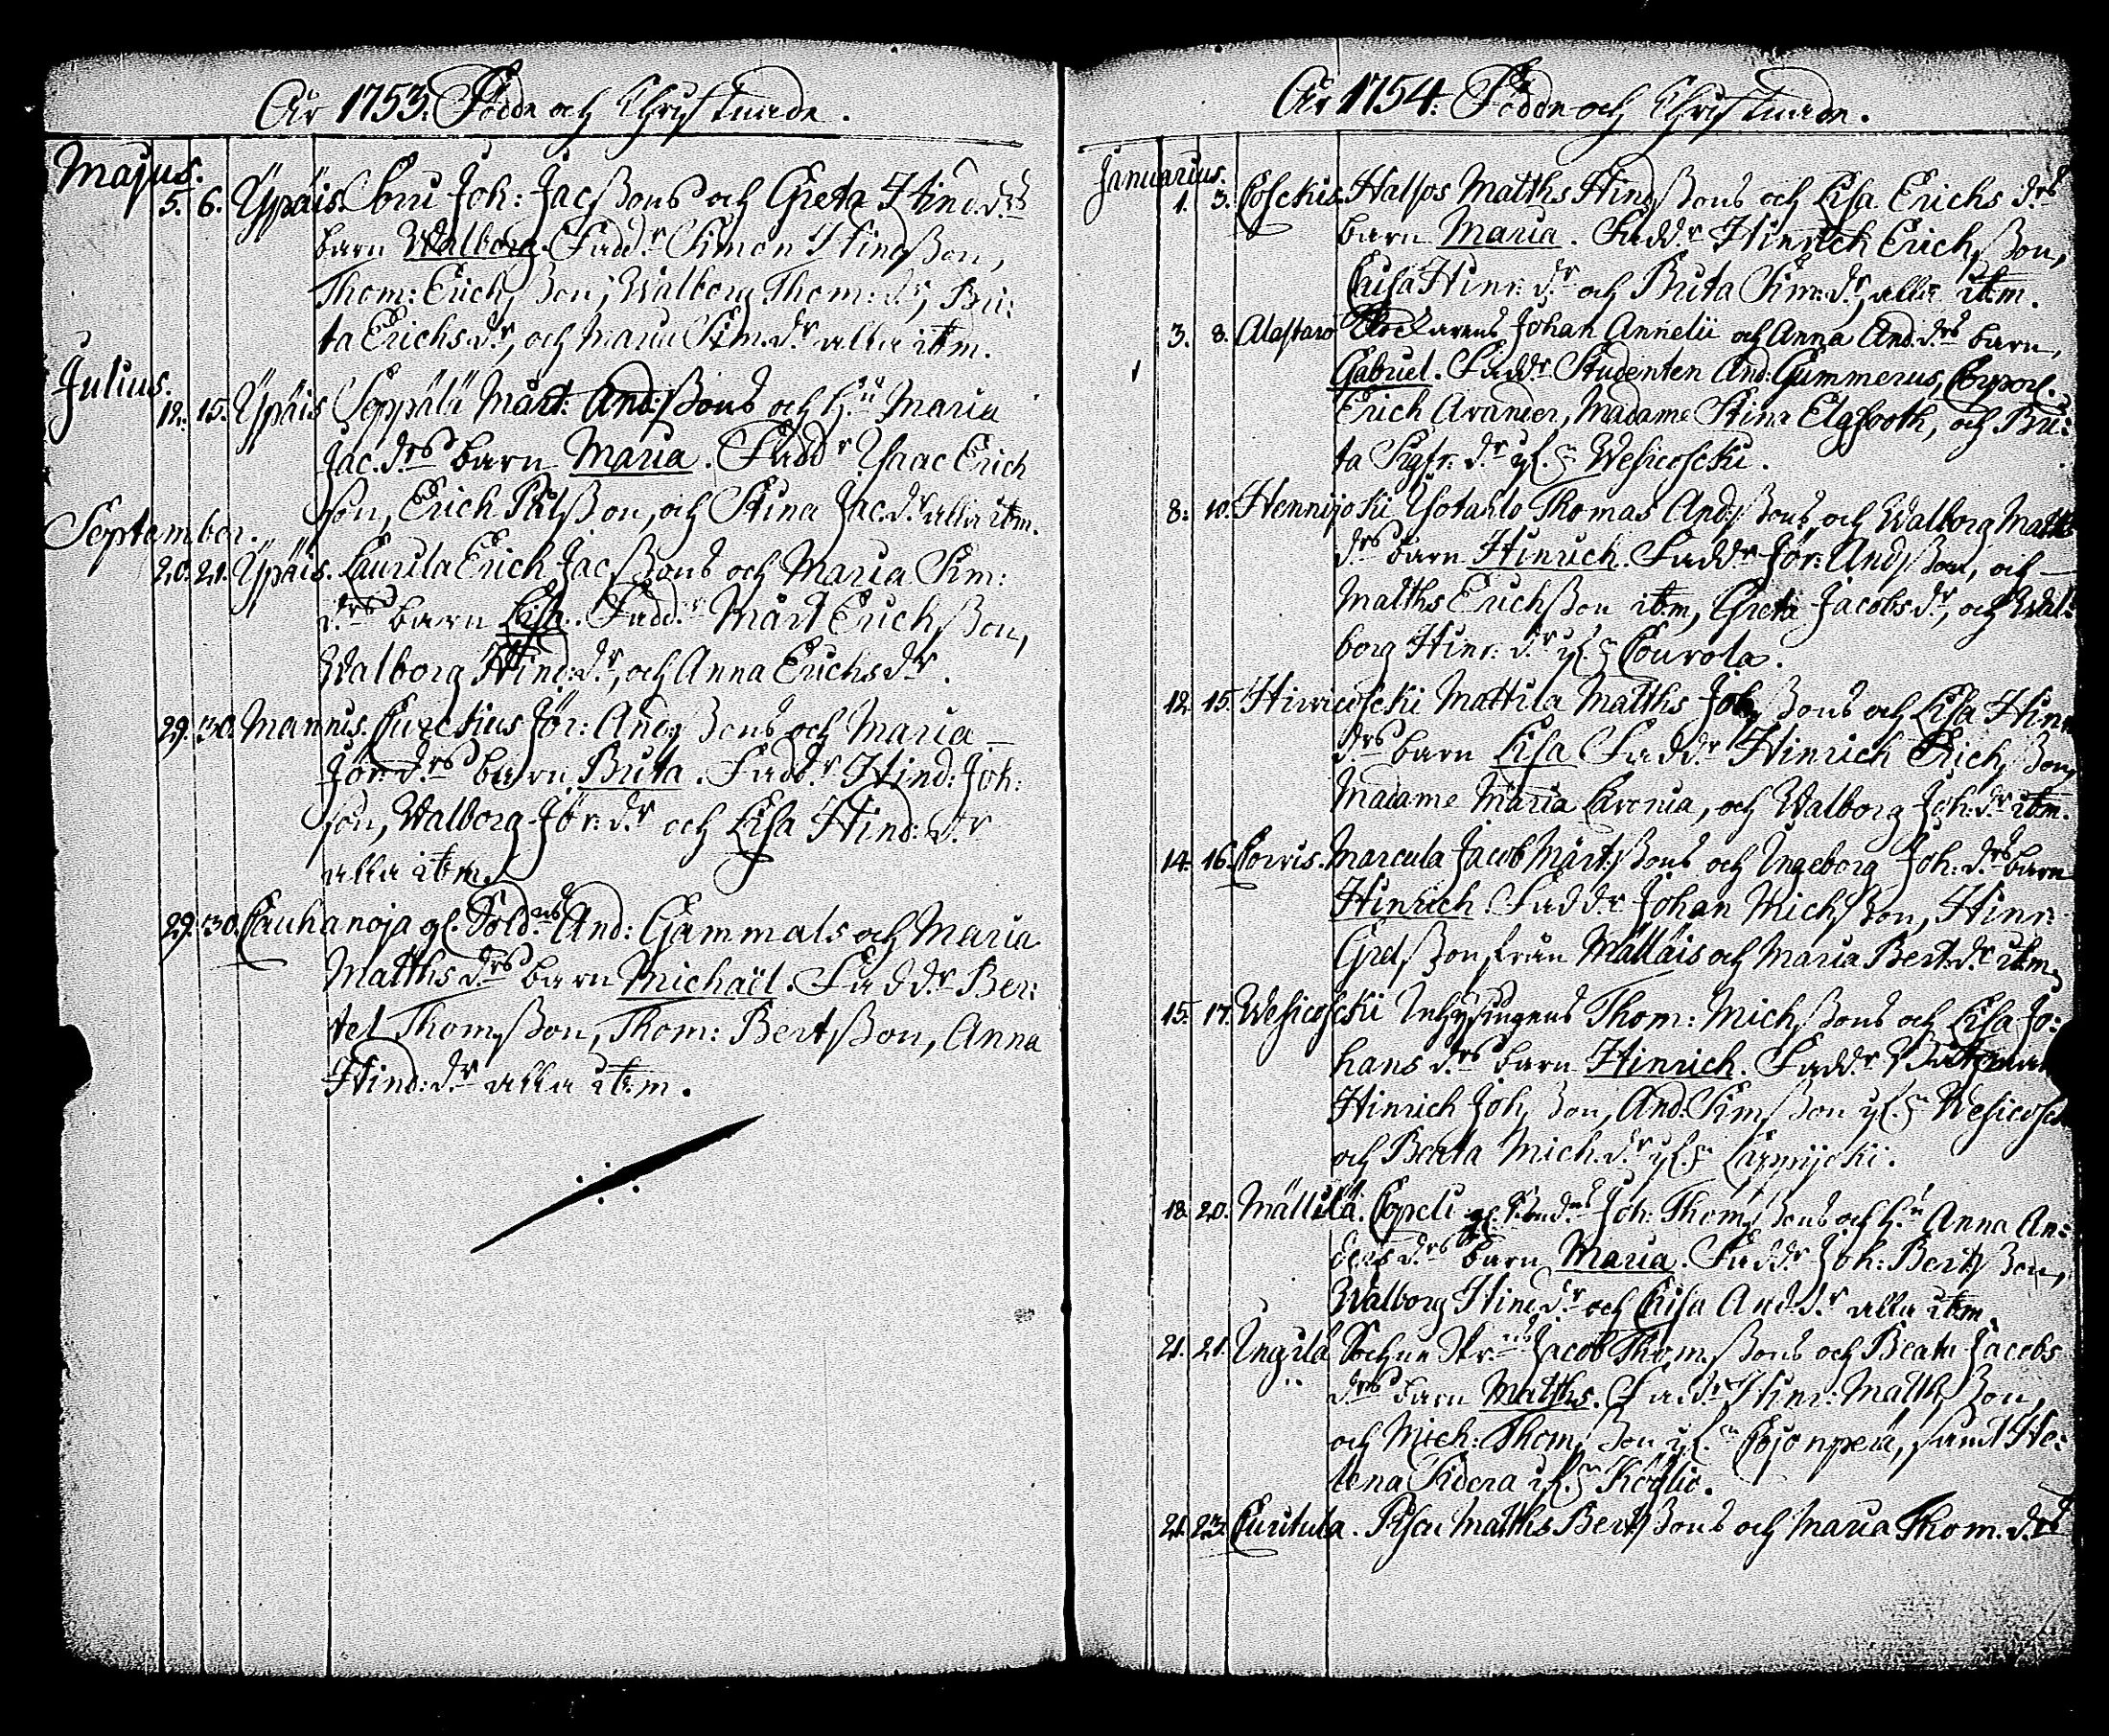 År 1753. Födde och Christnade.
Majus.
5. 6. Ypäis. Sorri Joh: Jacssons och Greta Hind. drs
barn Walborg. Fadd:r Simon Hindsson,
Thom: Erichsson, Walborg Thom: dr, Bri:
ta Erichs dr, och Maria Sim. dr alla ibm.
Julius.
12. 15. Ypäis Seppälä Mårt: Andssons och h:u Maria
Jac. drs barn Maria. Fadd:r Isaac Erich
son, Erich Pålsson, och Stina Jac. dr alla ibm.
September.
20. 21. Ypäis. Laurila Erich Jacssons och Maria Sim:
drs barn Lisa. Fadd:r Mårt Erichsson,
Walborg Hind: dr, och Anna Erichs dr.
29. 30. Mannis. Jör: Andssons och Maria
Jör: drs barn Brita. Fadd:r Hind: Joh:
son, Walborg Jör: dr och Lisa Hind: dr
alla ibm.
29. 30. Cauhanoja gl. Sold:ns And: Gammals och Maria
Matths drs barn Michaël. Fadd:r Ber:
tel Thomsson, Thom: Bertsson, Anna
Hind: dr alla ibm.
År 1754. Födde och Christnade.
Januarius.
1. 3. Coskis. Halsos Matths Hindssons och Lisa Erichs drs
barn Maria. Fadd:r Hinrich Erichsson,
Caisa Hinr: dr och Brita Sim: dr, alla ibm.
3. 8. Alastaro Clockarens Johan Annelii och Anna And. drs barn,
Gabriel. Fadd:r Studenten And: Gummerus, Corporl.
Erich Avander, Madame Stina Elgfooth, och Bri:
ta Sigfr: dr ifr. Wesicoscki.
8. 10. Hennijoki Isotalo Thomas Andssons, och Walborg Matths
drs barn Hinrich. Fadd:r Jör: Andsson, och
Matths Erichsson ibm, Greta Jacobs dr, och Wal:
borg Hinr: dr ifr. Courola.
12. 15. Hirvicoscki Mattila Matths Johssons och Lisa Hinr
drs barn Lisa Fadd:r Hinrich Erichsson,
Madame Maria Caronia, och Walborg Joh: dr ibm.
14. 16. Corvis. Marcula Jacob Mårtssons och Ingeborg Joh: drs barn
Hinrich. Fadd:r Johan Michsson, Hinr:
Grelsson från Mälläis och Maria Bert: dr ibm.
15. 17. Wesicoscki Inhysingens Thom: Michssons och Lisa Jo:
hans drs barn Hinrich. Fadd:r
Hinrich Johsson, And: Simsson ifr. Wesicosc
och Beata Mich: dr ifr. Lärmijoki.
18. 20. Mällilä. Copeli gl. Joh: Thomssons och h:u Anna An:
ders drs barn Maria. Fadd:r Joh: Bertsson,
Walborg Hind: dr och Caisa And: dr alla ibm.
21. 21. Ungila Sochne Skr:ns Jacob Thomssons och Beata Jacobs
drs barn Matths. Fadd:r Hinr: Matthsson,
och Mich: Thomsson ifr. Cojonperä, samt He:
lena Sidera ifr. Köylio.
21. 23. Curitula. Pisa Matths Bertssons och Maria Thom. drs